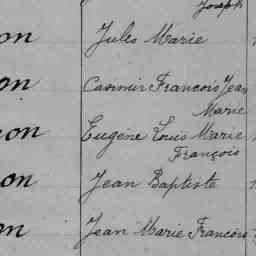 Joseph
on Jules Marie
on Casimir François Jean
Marie
on Eugène Louis Marie
François
on Jean Baptiste
on Jean Marie François